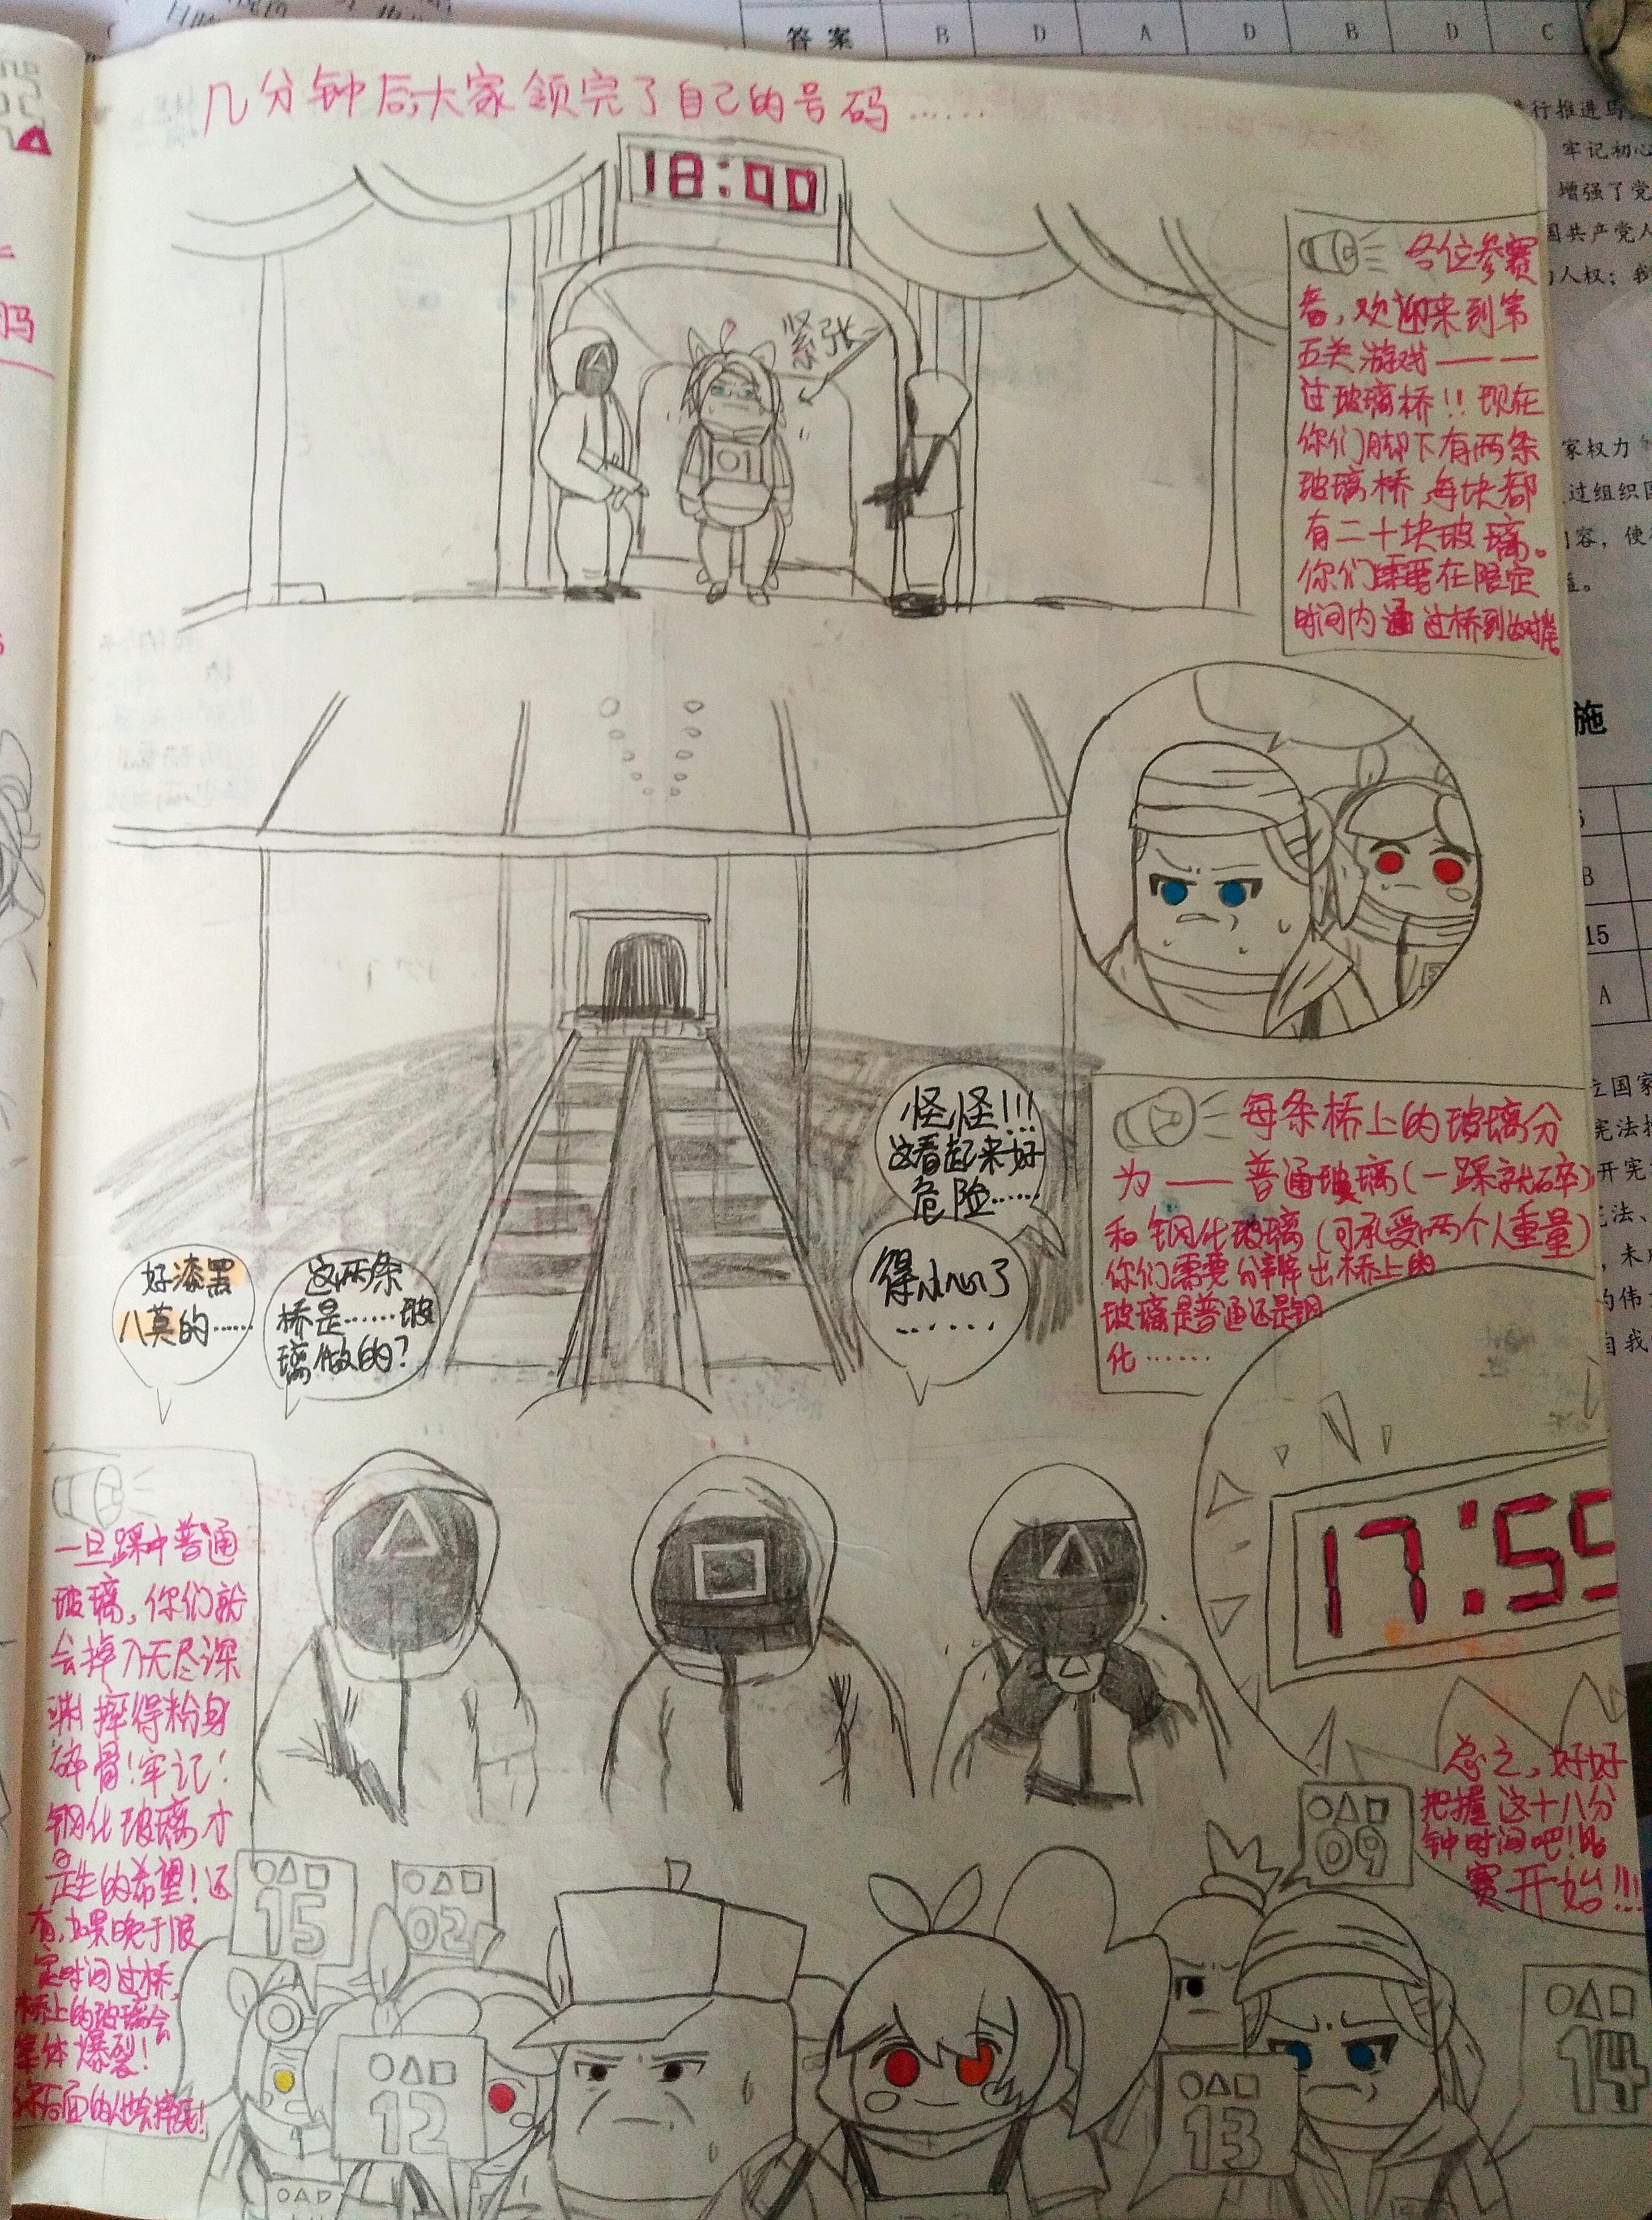 几分钟后,大家领完了自己的号码……
18:00
紧张
01
各位参赛
者,欢迎来到第
五关游戏——
过玻璃桥!!现在
你们脚下有两条
玻璃桥,每块都
有二十块玻璃。
你们需要在限定
时间内通过桥到达对岸。
怪怪!!!
这看起来好
危险……
得小心了
……
每条桥上的玻璃分
为——普通玻璃(一踩就碎)
和钢化玻璃(可承受两个人重量)
你们需要分辨出桥上的
玻璃是普通还是钢
化……
好漆黑
八莫的……
这两条
桥是……玻
璃做的?
17:55
一旦踩中普通
玻璃,你们就
会掉入无尽深
渊摔得粉身
碎骨!牢记!
钢化玻璃才
是生的希望!还
有,如果晚于限
定时间过桥,
桥上的玻璃会
集体爆裂!
总之,好好
把握这十八分
钟时间吧!比
赛开始!!!
○△□
09
○△□
15
○△□
02
○△□
12
○△□
13
○△□
14
○△□
答案 B D A D B D C
行推进马
牢记初心
增强了党
国共产党人
人权;我
家权力
过组织
容,使
施
B
15
A
立国家
宪法
开宪
宪法、
,未
的伟
自我